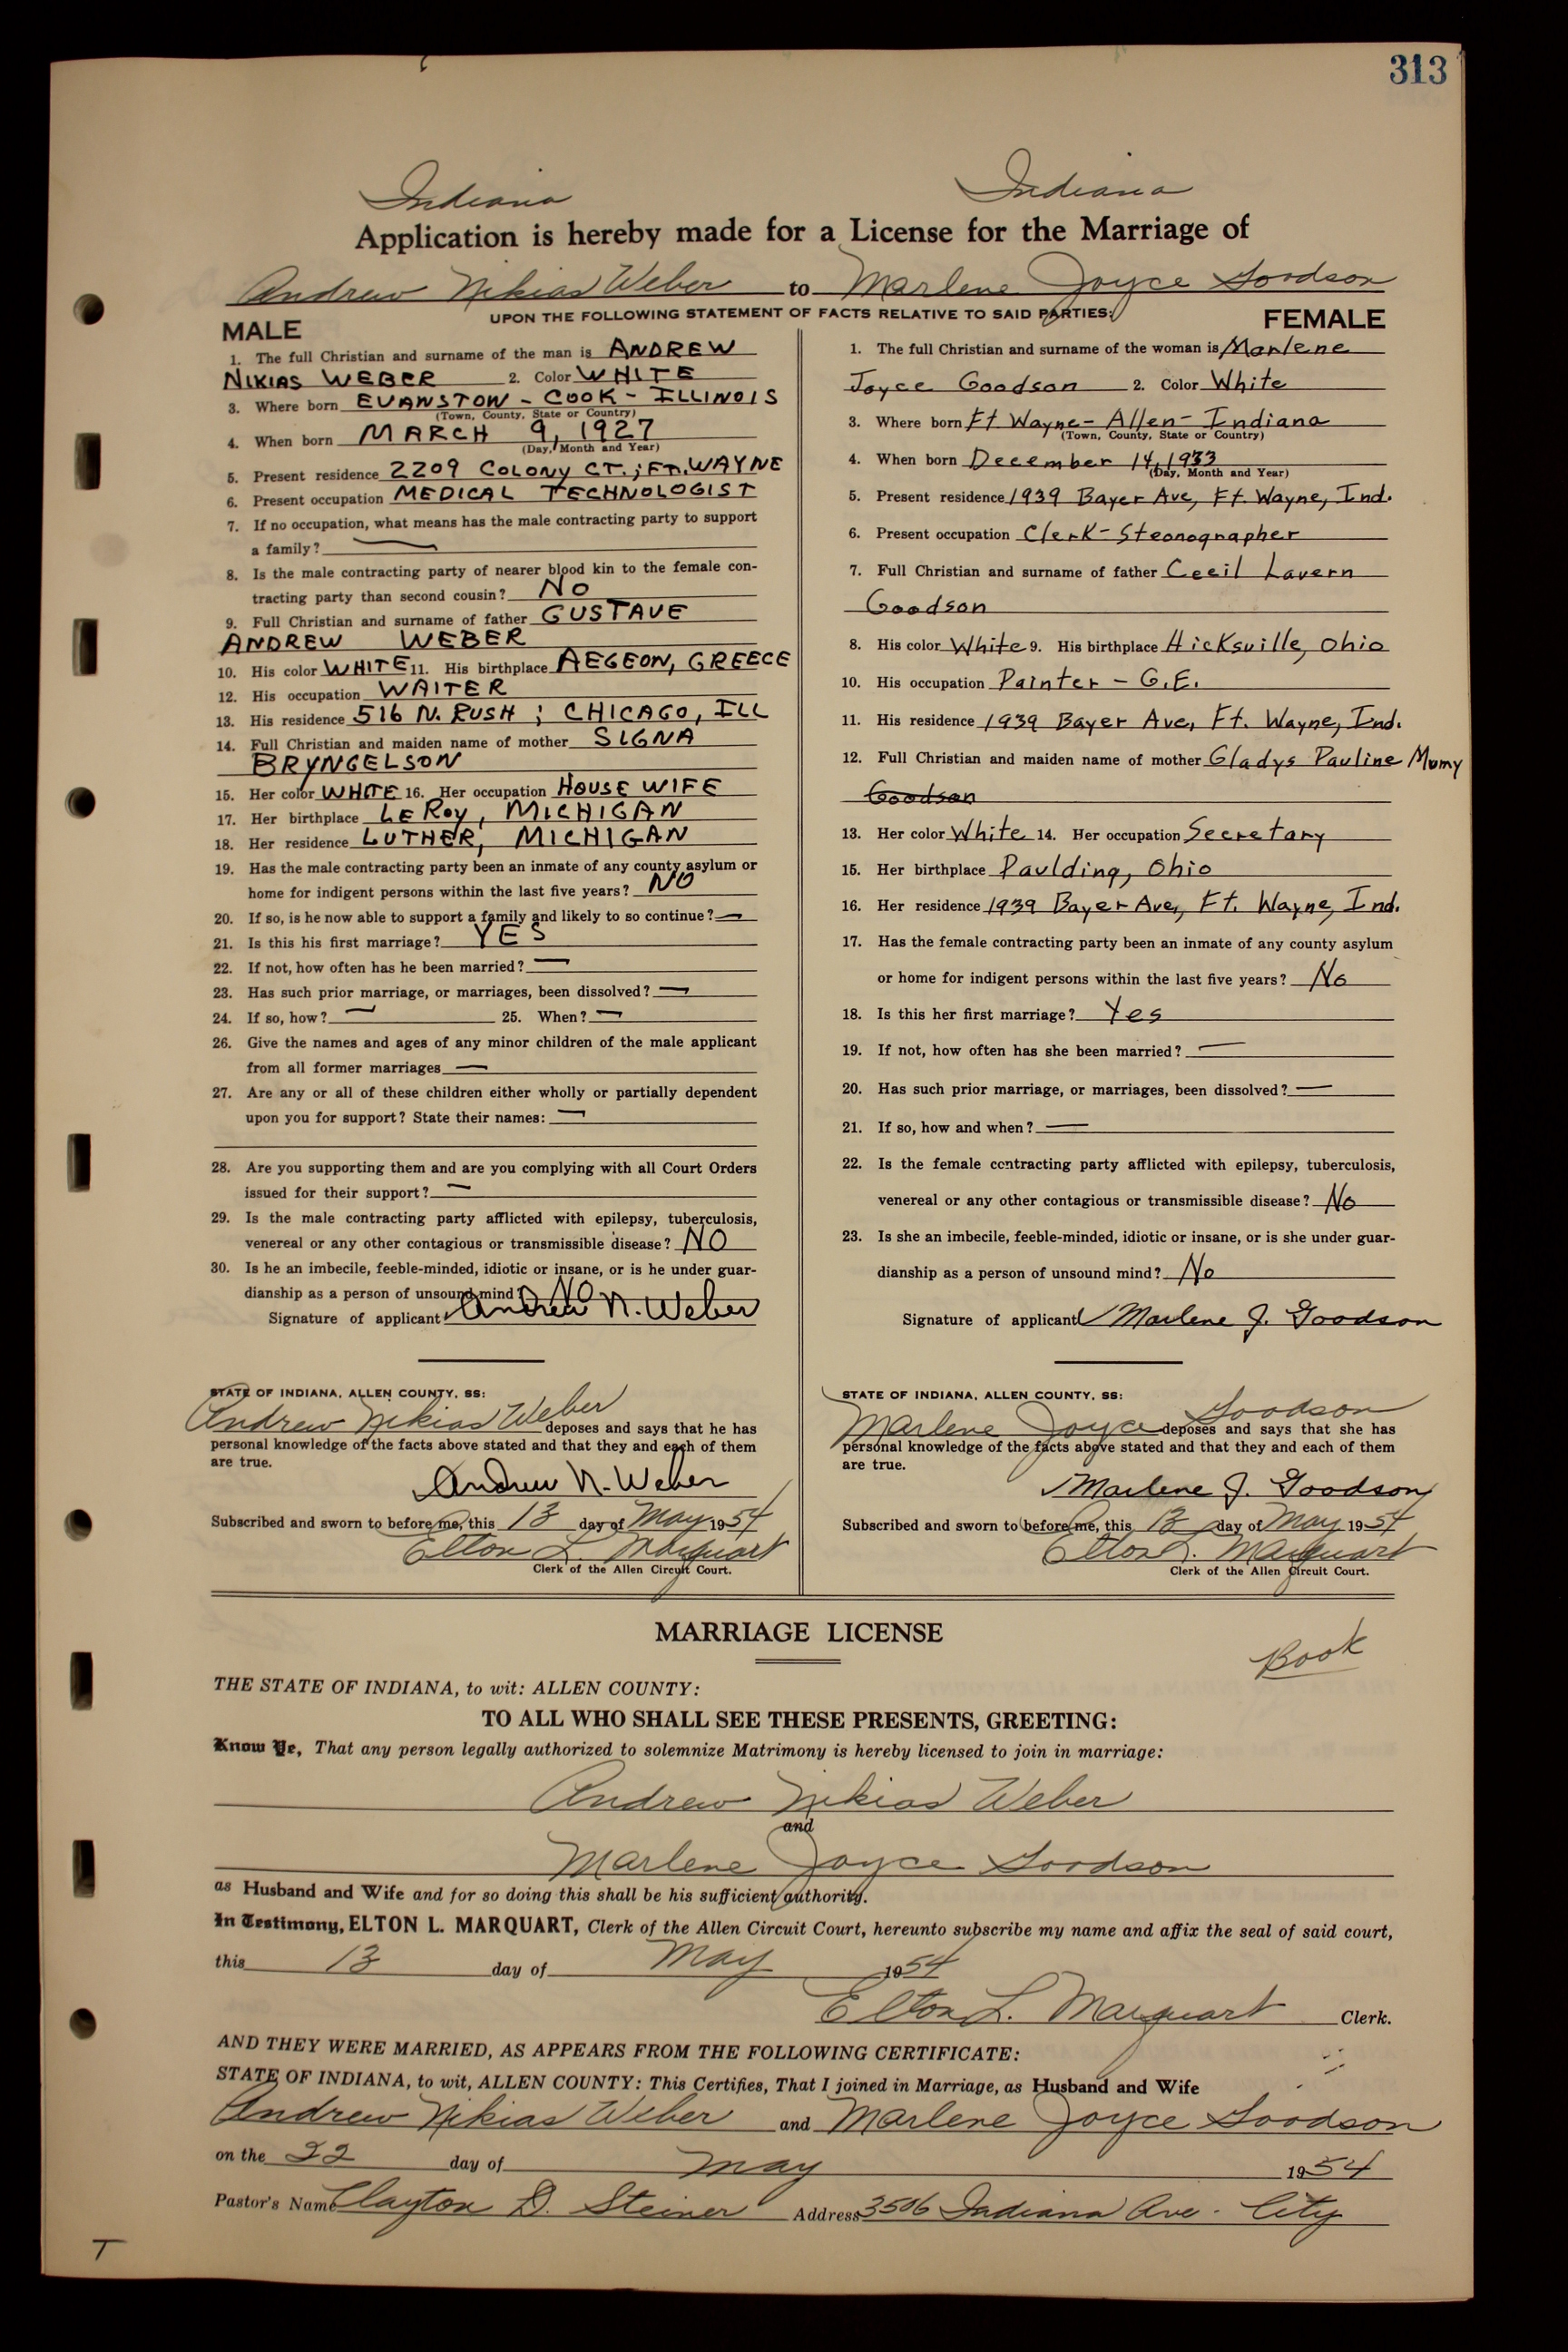 313
Indiana Indiana
Application is hereby made for a License for the Marriage of
Andrew Nikias Weber to Marlene Joyce Goodson
UPON THE FOLLOWING STATEMENT OF FACTS RELATIVE TO SAID PARTIES:
MALE
1. The full Christian and surname of the man is ANDREW
NIKIAS WEBER 2. Color WHITE
3. Where born EVANSTON - COOK - ILLINOIS
(Town, County, State or Country)
4. When born MARCH 9, 1927
(Day, Month and Year)
5. Present residence 2209 COLONY CT.; FT. WAYNE
6. Present occupation MEDICAL TECHNOLOGIST
7. If no occupation, what means has the male contracting party to support
a family? —
8. Is the male contracting party of nearer blood kin to the female con-
tracting party than second cousin? NO
9. Full Christian and surname of father GUSTAVE
ANDREW WEBER
10. His color WHITE 11. His birthplace AEGEON, GREECE
12. His occupation WAITER
13. His residence 516 N. RUSH ; CHICAGO, ILL
14. Full Christian and maiden name of mother SIGNA
BRYNGELSON
15. Her color WHITE 16. Her occupation HOUSE WIFE
17. Her birthplace LEROY, MICHIGAN
18. Her residence LUTHER, MICHIGAN
19. Has the male contracting party been an inmate of any county asylum or
home for indigent persons within the last five years? NO
20. If so, is he now able to support a family and likely to so continue? —
21. Is this his first marriage? YES
22. If not, how often has he been married? —
23. Has such prior marriage, or marriages, been dissolved? —
24. If so, how? — 25. When? —
26. Give the names and ages of any minor children of the male applicant
from all former marriages —
27. Are any or all of these children either wholly or partially dependent
upon you for support? State their names: —
28. Are you supporting them and are you complying with all Court Orders
issued for their support? —
29. Is the male contracting party afflicted with epilepsy, tuberculosis,
venereal or any other contagious or transmissible disease? NO
30. Is he an imbecile, feeble-minded, idiotic or insane, or is he under guar-
dianship as a person of unsound mind? NO
Signature of applicant Andrew N. Weber
STATE OF INDIANA, ALLEN COUNTY, SS:
Andrew Nikias Weber deposes and says that he has
personal knowledge of the facts above stated and that they and each of them
are true.
Andrew N. Weber
Subscribed and sworn to before me, this 13 day of May 1954
Elton L. Marquart
Clerk of the Allen Circuit Court.
FEMALE
1. The full Christian and surname of the woman is Marlene
Joyce Goodson 2. Color White
3. Where born Ft Wayne - Allen - Indiana
(Town, County, State or Country)
4. When born December 14, 1933
(Day, Month and Year)
5. Present residence 1939 Bayer Ave, Ft. Wayne, Ind.
6. Present occupation Clerk - Steonographer
7. Full Christian and surname of father Cecil Lavern
Goodson
8. His color White 9. His birthplace Hicksville, Ohio
10. His occupation Painter - G.E.
11. His residence 1939 Bayer Ave, Ft. Wayne, Ind.
12. Full Christian and maiden name of mother Gladys Pauline Mumy
Goodson
13. Her color White 14. Her occupation Secretary
15. Her birthplace Paulding, Ohio
16. Her residence 1939 Bayer Ave, Ft. Wayne, Ind.
17. Has the female contracting party been an inmate of any county asylum
or home for indigent persons within the last five years? No
18. Is this her first marriage? Yes
19. If not, how often has she been married? —
20. Has such prior marriage, or marriages, been dissolved? —
21. If so, how and when? —
22. Is the female contracting party afflicted with epilepsy, tuberculosis,
venereal or any other contagious or transmissible disease? No
23. Is she an imbecile, feeble-minded, idiotic or insane, or is she under guar-
dianship as a person of unsound mind? No
Signature of applicant Marlene J. Goodson
STATE OF INDIANA, ALLEN COUNTY, SS:
Marlene Joyce Goodson deposes and says that she has
personal knowledge of the facts above stated and that they and each of them
are true.
Marlene J. Goodson
Subscribed and sworn to before me, this 13 day of May 1954
Elton L. Marquart
Clerk of the Allen Circuit Court.
MARRIAGE LICENSE
Book
THE STATE OF INDIANA, to wit: ALLEN COUNTY:
TO ALL WHO SHALL SEE THESE PRESENTS, GREETING:
Know Ye, That any person legally authorized to solemnize Matrimony is hereby licensed to join in marriage:
Andrew Nikias Weber
and
Marlene Joyce Goodson
as Husband and Wife and for so doing this shall be his sufficient authority.
In Testimony, ELTON L. MARQUART, Clerk of the Allen Circuit Court, hereunto subscribe my name and affix the seal of said court,
this 13 day of May 1954
Elton L. Marquart Clerk.
AND THEY WERE MARRIED, AS APPEARS FROM THE FOLLOWING CERTIFICATE:
STATE OF INDIANA, to wit, ALLEN COUNTY: This Certifies, That I joined in Marriage, as Husband and Wife
Andrew Nikias Weber and Marlene Joyce Goodson
on the 22 day of May 1954
Pastor's Name Clayton D. Steiner Address 3506 Indiana Ave. City
T